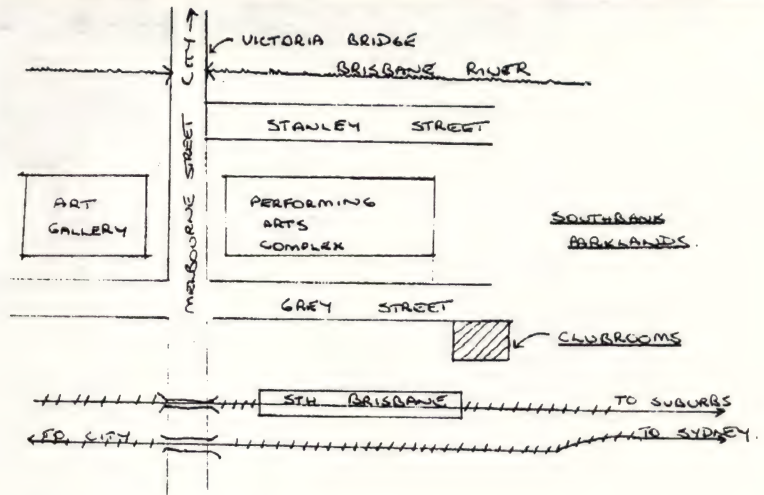 VICTORIA BRIDGE
BRISBANE RIVER
MELBOURNE STREET CITY →
STANLEY STREET
ART
GALLERY
PERFORMING
ARTS
COMPLEX
SOUTHBANK
PARKLANDS.
GREY STREET
CLUBROOMS
STH BRISBANE
TO SUBURBS
TO CITY
TO SYDNEY.